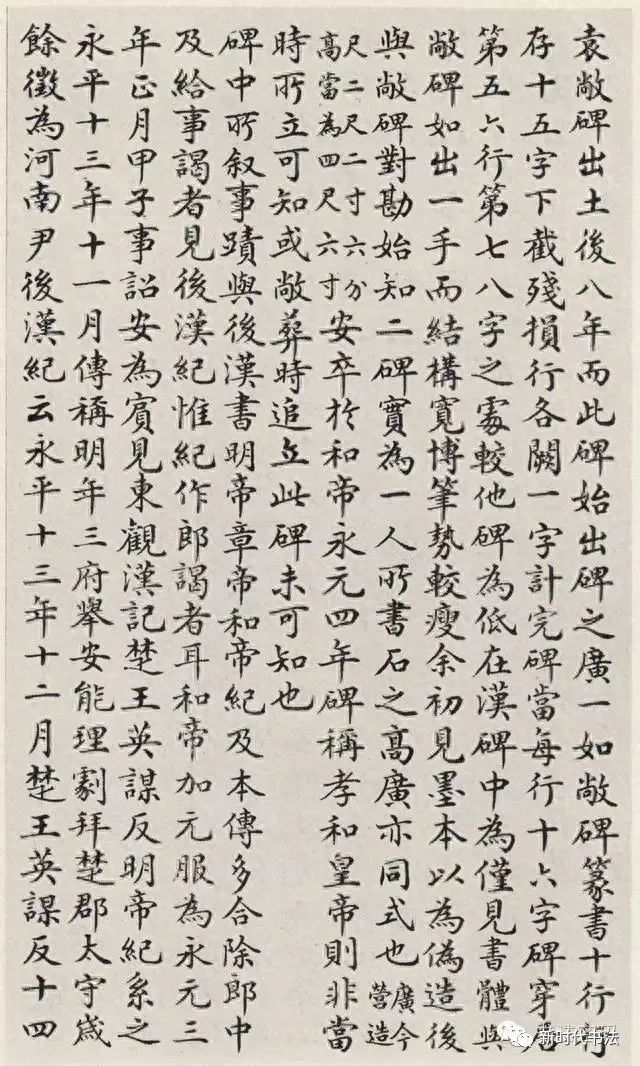 袁敞碑出土後八年而此碑始出碑之廣一如敞碑篆書十行行
存十五字下截殘損行各闕一字計完碑當每行十六字碑穿居
第五六行第七八字之處較他碑為低在漢碑中為僅見書體與
敞碑如出一手而結構寬博筆勢較瘦余初見墨本以為偽造後
與敞碑對勘始知二碑實為一人所書石之高廣亦同式也廣今營造
尺二尺二寸六分高當為四尺六寸安卒於和帝永元四年碑稱孝和皇帝則非當
時所立可知或敞葬時追立此碑未可知也
碑中所叙事蹟與後漢書明帝章帝和帝紀及本傳多合除郎中
及給事謁者見後漢紀惟紀作郎謁者耳和帝加元服為永元三
年正月甲子事詔安為賓見東觀漢記楚王英謀反明帝紀系之
永平十三年十一月傳稱明年三府舉安能理劇拜楚郡太守歲
餘徵為河南尹後漢紀云永平十三年十二月楚王英謀反十四
新时代书法